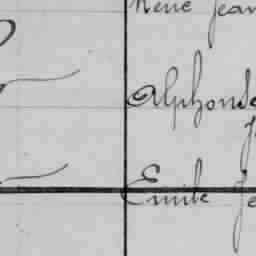 René Jean
Alphonse
Emile Je